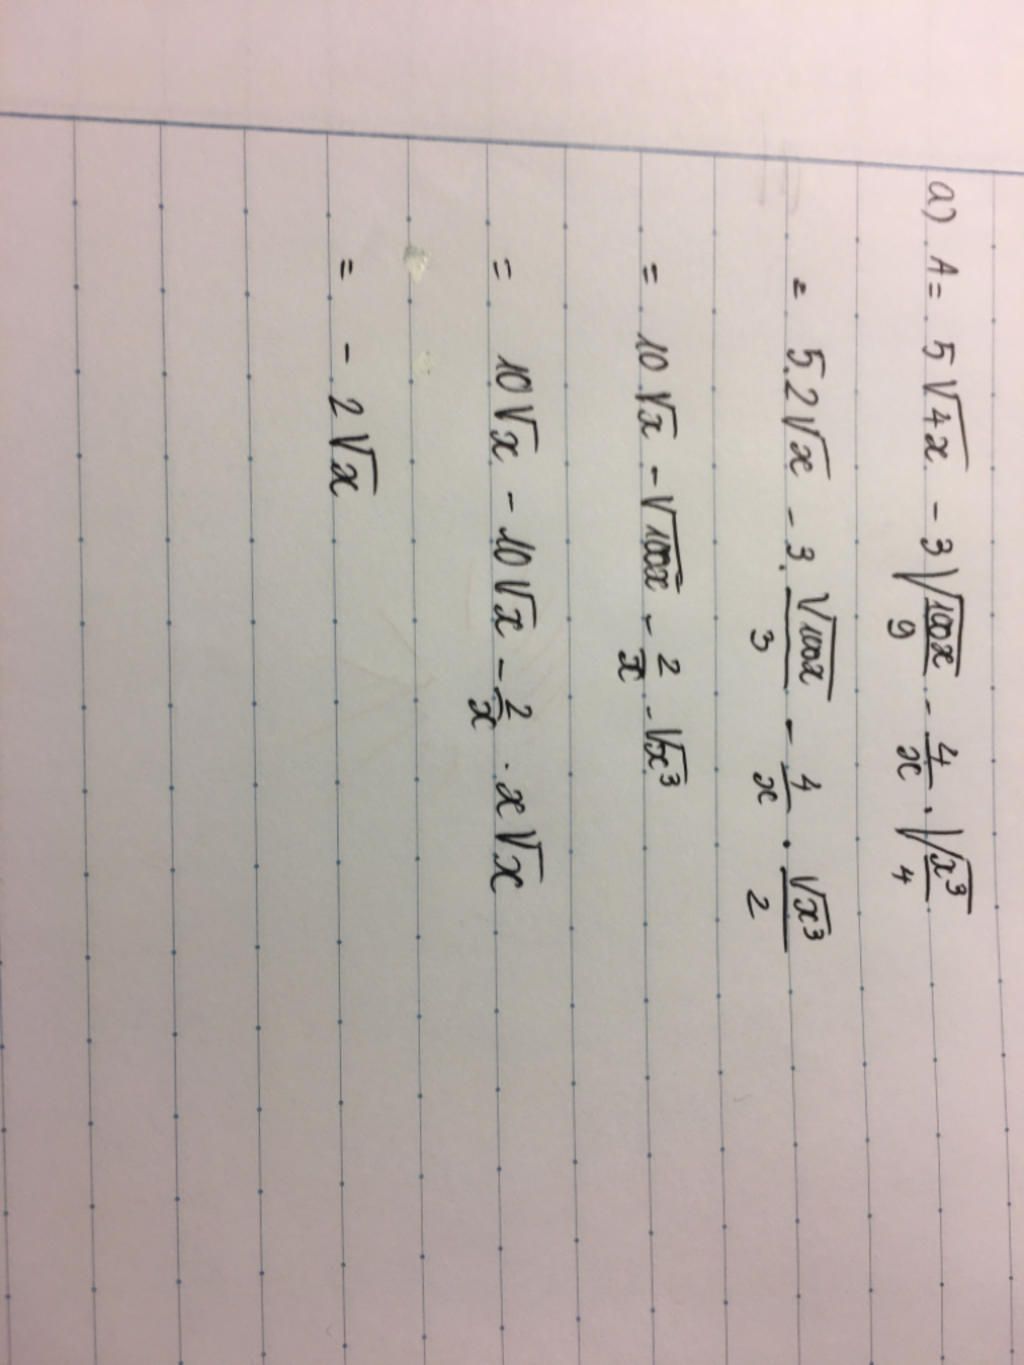 a) A = 5√4x - 3√(100x/9) - 4/x . √(x³/4)
= 5.2√x - 3. √100x/3 - 4/x . √x³/2
= 10√x - √100x - 2/x - √x³
= 10√x - 10√x - 2/x . x√x
= - 2√x